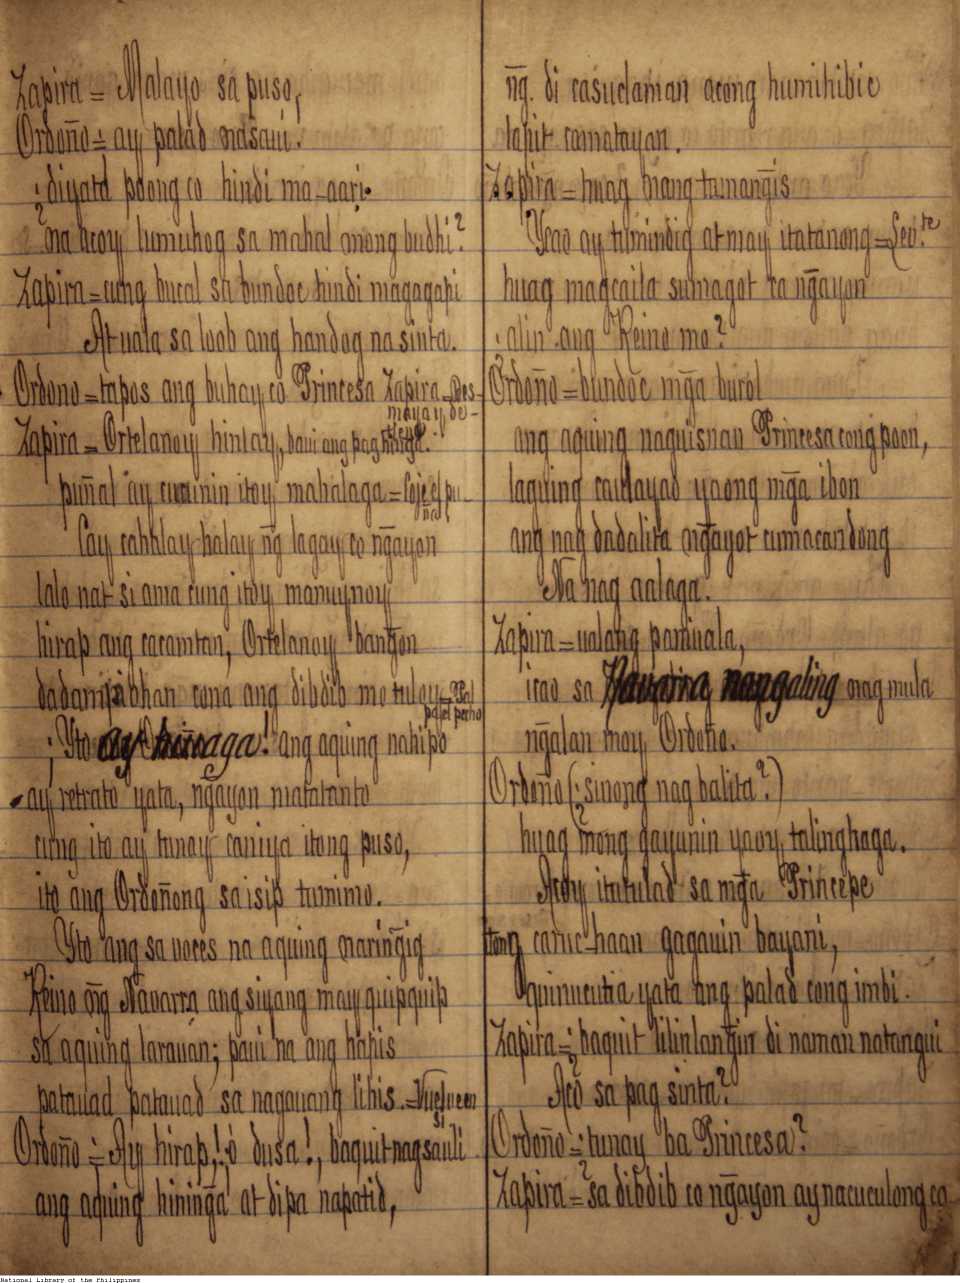 Zapira = Malayo sa puso,
Ordoño = ay palad nasaui.
¿diyata poong co hindi ma-aari
na acoy lumuhog sa mahal mong budhi?
Zapira = cung bucal sa bundoc hindi magagapi
At uala sa loob ang handog na sinta.
Ordono = tapos ang buhay co Princesa Zapira = Des-
mayay de-
Zapira = Ortelanoy hintay, baui ang pag
puñal ay cucunin itoy mahalaga = Coje el pu-
ñal
Cay cahblay-halay ñg lagay co ngayon
lalo nat si ama cung itoy manuynoy
hirap ang cacamtan, Ortelanoy bangon
dadampibhan cona ang dibdib mo tuloy = Pal
pa el pecho
¡Yto ay hiuaga! ang aquing nahipo
ay retrato yata, ngayon matatanto
cung ito ay tunay caniya itong puso,
ito ang Ordoñong sa isip tumimo.
Yto ang sa voces na aquing naringig
Reino ñg Navarra ang siyang may quipquip
sa aquing larauan; paui na ang hapis
patauad patauad sa nagauang lihis. = Vuelve en
si
Ordoño = ¡Ay hirap,! ¡ó dusa!, baquit nagsauli
ang aquing hininga at dipa napatid,
ñg. di casuclaman acong humihibic
lapit camatayan.
Zapira = huag nang tumangis
Ycao ay tumindig at may itatanong = Levte
huag magcaila sumagot ca ngayon
¿alin ang Reino mo?
Ordoño = bundoc mga burol
ang aquing naguisnan Princesa cong poon,
laguing caulayao yaong mga ibon
ang nag dadalita ngayot cumacandong
Na nag aalaga.
Zapira = ualang paniuala,
icao sa Navarra nangaling nag mula
ngalan moy Ordoño.
Ordoño (¿sinong nag balita?)
huag mong gayunin yaoy talinghaga.
Acoy itutulad sa mga Principe
tong caruc-haan gagauin bayani,
quinucutia yata ang palad cong imbi.
Zapira = ¿baquit lilinlangin di naman natangui
Aco sa pag sinta?
Ordoño = ¿tunay ba Princesa?
Zapira = sa dibdib co ngayon ay nacuculong ca
National Library of the Philippines